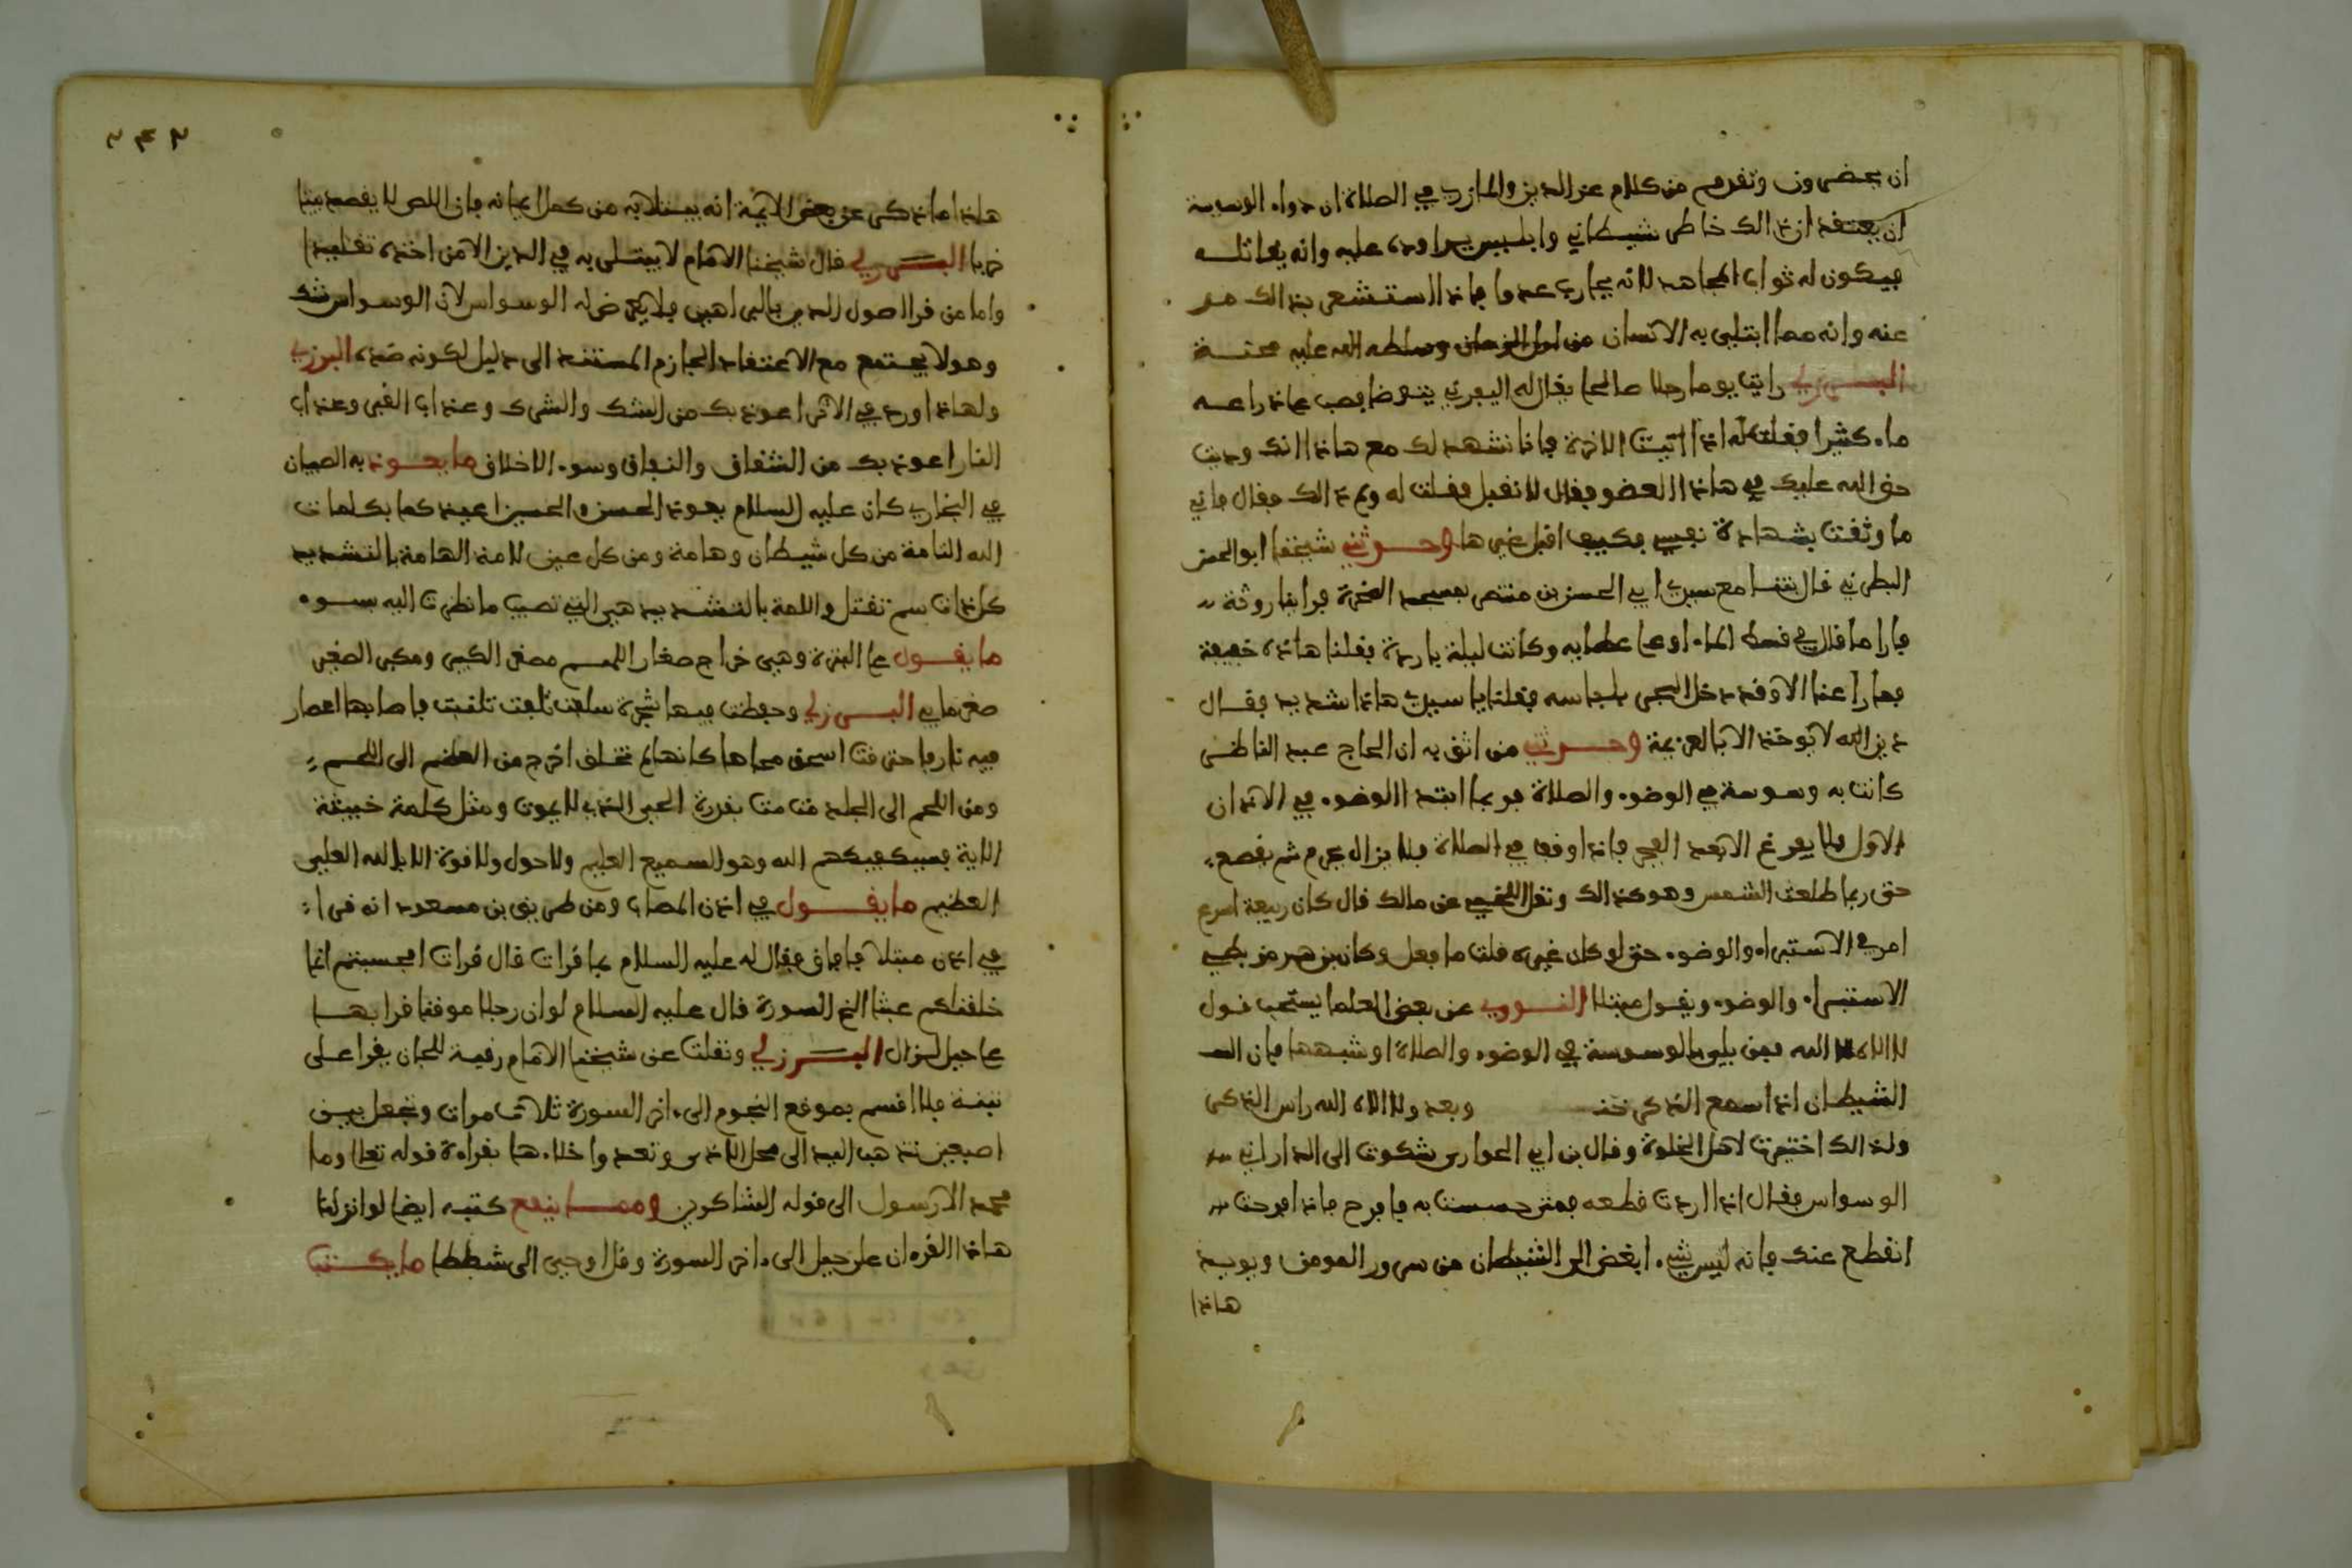 ان يحضرون وتقدم من كلام عز الدين والمازري في الصلاة ان دواء الوسوسة
ان يعتقد ان ذالك خاطر شيطاني وابليس يراوده عليه وانه يقاتله
فيكون له ثواب المجاهد لانه يحارب عدوا فاذا استشعر بذالك فر
عنه وانه مما ابتلي به الانسان من اول الزمان وسلطه الله عليه محنة
البرزلي رايت يوما رجلا صالحا يقال له اليفرني يتوضا فصب على ذراعه
ماء كثيرا فقلت له اذا اتيت الاخرة فانا نشهد لك مع هاذا انك وديت
حق الله عليك في هاذا العضو فقال لا نقبل فقلت له ولم ذالك فقال فاني
ما وثقت بشهادة نفسي فكيف اقبل غيرها وحدثني شيخنا ابو الحسن
البطرني قال بتنا مع سيدي ابي الحسن بن منتصر بمسجد الصخرة فراينا روثة
فارا ما قال في قسط الماء او على غطايه وكانت ليلة باردة فقلنا هاذه خفيفة
فما راعنا الا وقد دخل البحر بلباسه فقلنا يا سيدي هاذا شديد فقال
دين الله لا توخذ الا بالعزيمة وحدثني من اثق به ان الحاج عبد الناظر
كانت به وسوسة في الوضوء والصلاة فربما ابتدا الوضوء في الاذان
الاول فلا يفرغ الا بعد الفجر فاذا وقف في الصلاة فلا يزال يحرم ثم يقطع
حتى ربما طلعت الشمس وهو كذالك ونقل اللخمي عن مالك قال كان ربيعة اسرع
امرء في الاستبراء والوضوء حتى لو كان غيره قلت ما فعل وكان بن هرمز بطيء
الاستبراء والوضوء ويقول مبتلا النووي عن بعض العلما يستحب قول
لا الاه الا الله فمن بلي بالوسوسة في الوضوء والصلاة او شبههما فان
الشيطان اذا سمع الذكر خنس وبعد ولا الاه الا الله راس الذكر
ولذالك اختيرت لاهل الخلوة وقال بن ابي الحواري شكوت الى الداراني
الوسواس فقال اذا اردت قطعه فمتى حسست به فافرح فاذا فرحت
انقطع عنك فانه ليس شيء ابغض الى الشيطان من سرور المومن ويويد
هاذا
٢٤٢
هاذا ما ذكر عن بعض الايمة انه يبتلا به من كمل ايمانه فان اللص لا يقصد بيتا
خربا البرزلي قال شيخنا الامام لا يبتلى به في الدين الا من اخذه تقليدا
واما من قرا اصول الدين بالبراهين فلا يعرض له الوسواس لان الوسواس شك
وهو لا يجتمع مع الاعتقاد الجازم المستند الى دليل لكونه ضده البرزلي
ولهاذا ورد في الاثر اعوذ بك من الشك والشرك وعذاب القبر وعذاب
النار اعوذ بك من الشقاق والنفاق وسوء الاخلاق ما يعوذ به الصبيان
في البخاري كان عليه السلام يعوذ الحسن والحسين اعيذكما بكلمات
الله التامة من كل شيطان وهامة ومن كل عين لامة الهامة بالتشديد
كل ذات سم تقتل واللامة بالتشديد هي التي تصيب ما نظرت اليه بسوء
ما يقول على البثرة وهي خراج صغار اللهم مصغر الكبير ومكبر الصغير
صغر ما بي البرزلي وحفظت فيها شجرة سلقت تلفت تلفت فاصابها اعصار
فيه نار فاحترقت اسحق محاها كانها لم تخلق اخرج من العظم الى اللحم
ومن اللحم الى الجلد مت مت بقدرة الحي الذي لا يموت ومثل كلمة خبيثة
الاية فسيكفيكهم الله وهو السميع العليم ولا حول ولا قوة الا بالله العلي
العظيم ما يقول في اذن المصاب ومن طريق بن مسعود انه قرا
في اذن مبتلا فافاق فقال له عليه السلام بما قرات قال قرات افحسبتم انما
خلقناكم عبثا الخ السورة قال عليه السلام لو ان رجلا موقنا قرا بها
على جبل لزال البرزلي ونقلت عن شيخنا الامام رقية للجان يقرا على
فلا اقسم بموقع النجوم الى ءاخر السورة ثلاث مرات وتجعل بين
اصبعين تذهب اليد الى محل الاذى وتعدو اخلاءها بقراءة قوله تعلا وما
محمد الا رسول الى قوله الشاكرين ومما ينفع كتبه ايضا لو انزلنا
هاذا القرءان على جبل الى ءاخر السورة وقل اوحي الى شططا ما يكتب